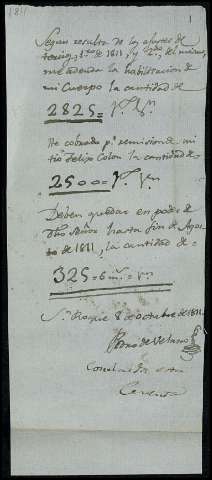 1811
1
Segun resulta de los ajustes de
tercio, 1.º de 1811, y 2.do del mismo,
me adeuda la habilitacion de
mi Cuerpo la cantidad de
2825=
He cobrado p.r remision de mi
tio Felix Colon la cantidad de=
2500=
Deben quedar en poder de
dho Señor hasta fin de Agos
to de 1811, la cantidad de=
325=6
S.n Roque 8 de octubre de 1811
Pedro de Velasco